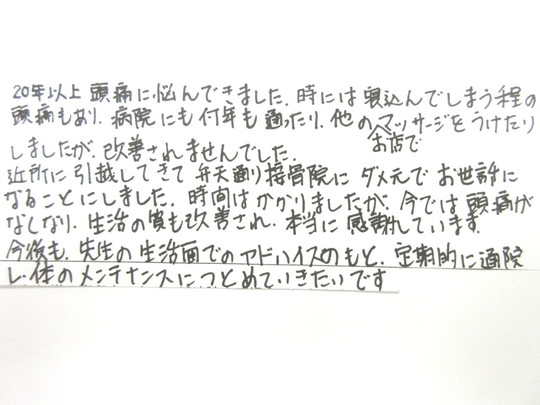 20年以上 頭痛に悩んできました。時には寝込んでしまう程の
頭痛もあり、病院にも何年も通ったり、他のマッサージをうけたり
お店で
しましたが、改善されませんでした。
近所に引越してきて 弁天通り接骨院に ダメ元で お世話に
なることにしました。時間はかかりましたが、今では頭痛が
なくなり、生活の質も改善され、本当に感謝しています。
今後も、先生の生活面でのアドバイスのもと、定期的に通院
し、体のメンテナンスにつとめていきたいです